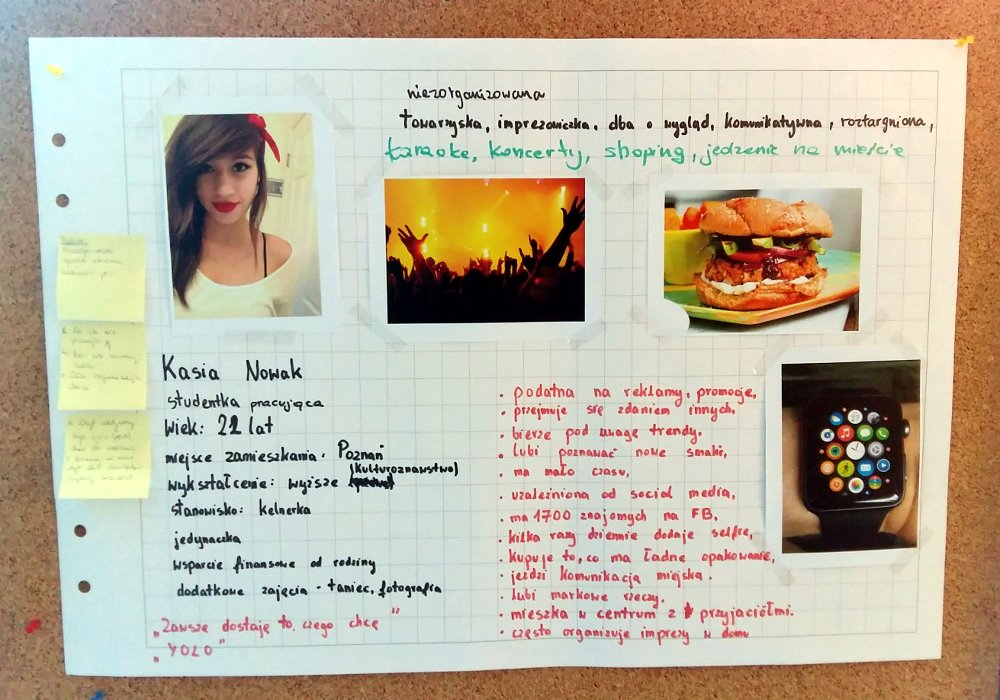 niezorganizowana
towarzyska, imprezowiczka, dba o wygląd, komunikatywna, roztargniona,
karaoke, koncerty, shoping, jedzenie na mieście
Kasia Nowak
studentka pracująca
wiek: 22 lat
miejsce zamieszkania: Poznań
(kulturoznawstwo)
wykształcenie: wyższe
stanowisko: kelnerka
jedynaczka
wsparcie finansowe od rodziny
dodatkowe zajęcia - taniec, fotografia
"Zawsze dostaję to, czego chcę"
"YOLO"
. podatna na reklamy, promocje,
. przejmuje się zdaniem innych,
. bierze pod uwagę trendy,
. lubi poznawać nowe smaki,
. ma mało czasu,
. uzależniona od social media,
. ma 1700 znajomych na FB,
. kilka razy dziennie dodaje selfie,
. kupuje to, co ma ładne opakowanie,
. jeździ komunikacją miejską.
. lubi markowe rzeczy,
. mieszka w centrum z przyjaciółmi.
. często organizuje imprezy w domu